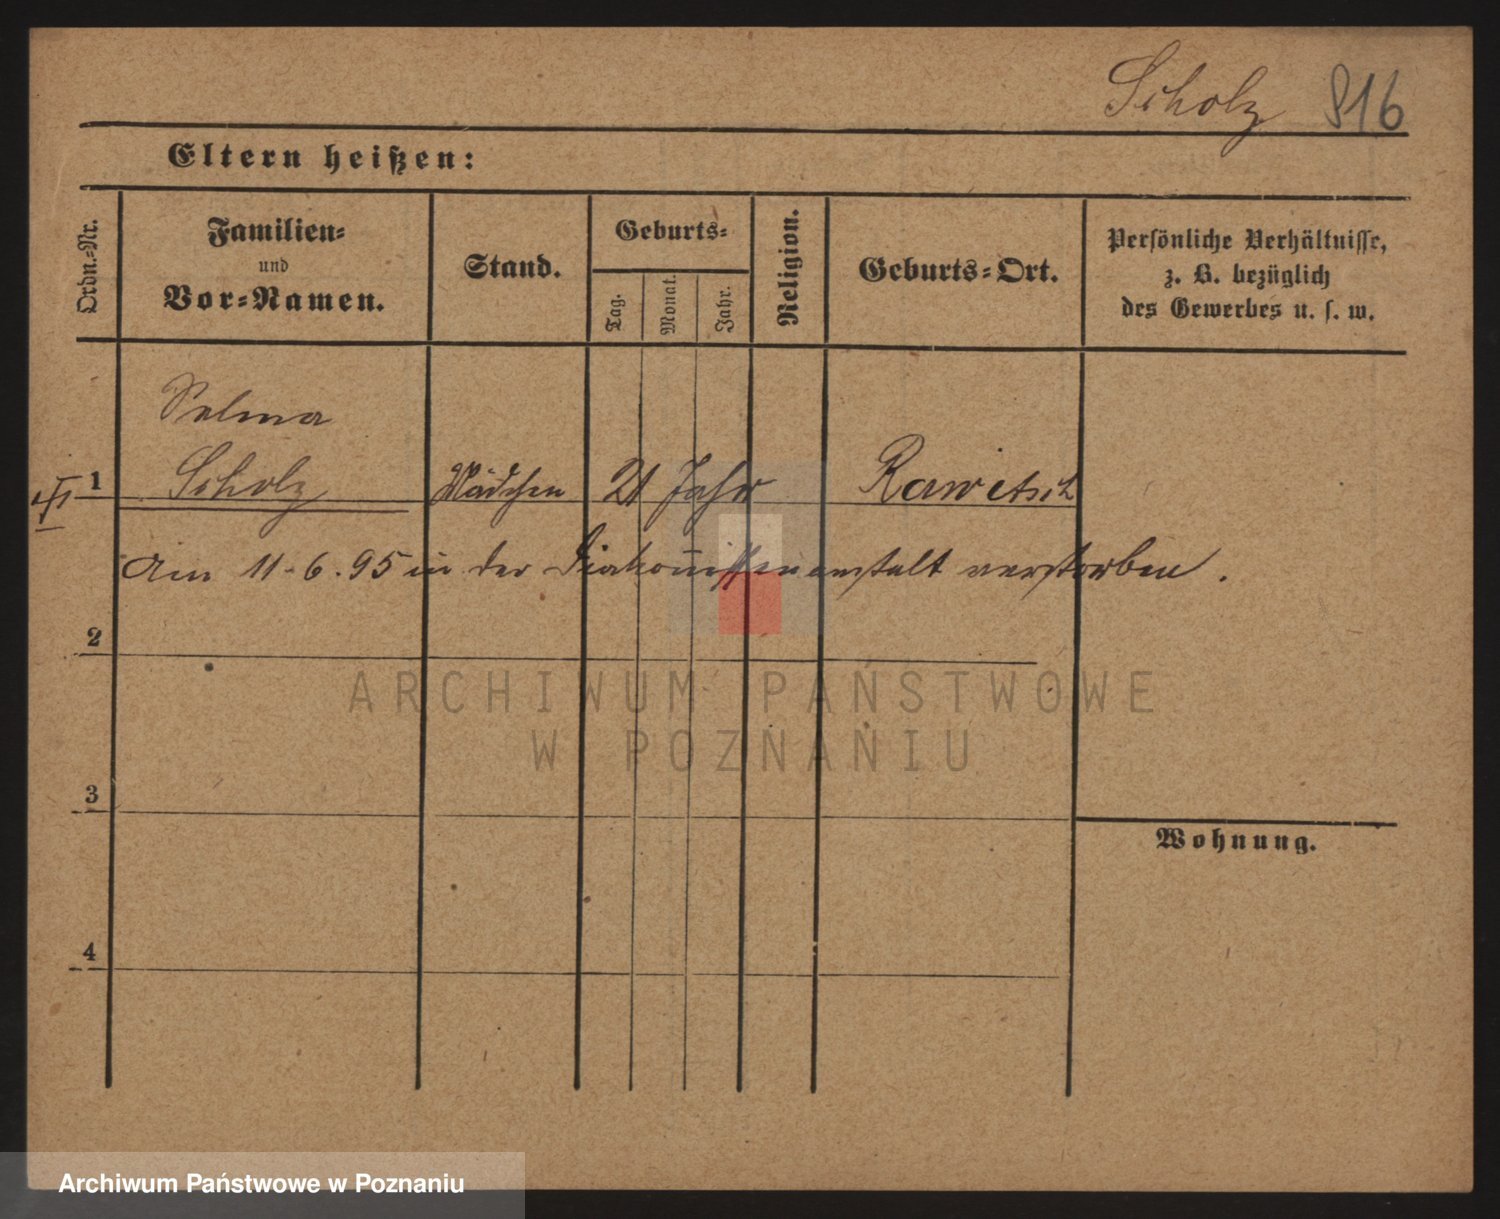 Scholz 816
Eltern heißen:
Ordn.-Nr.
Familien-
und
Vor-Namen.
Stand.
Geburts-
Tag.
Monat.
Jahr.
Religion.
Geburts-Ort.
Persönliche Verhältnisse,
z. B. bezüglich
des Gewerbes u. s. w.
Selma
1 Scholz Mädchen 21 Jahr Rawitsch
Am 11.6.95 in der Diakonissenanstalt verstorben.
2
ARCHIWUM PAŃSTWOWE
W POZNANIU
3
Wohnung.
4
Archiwum Państwowe w Poznaniu